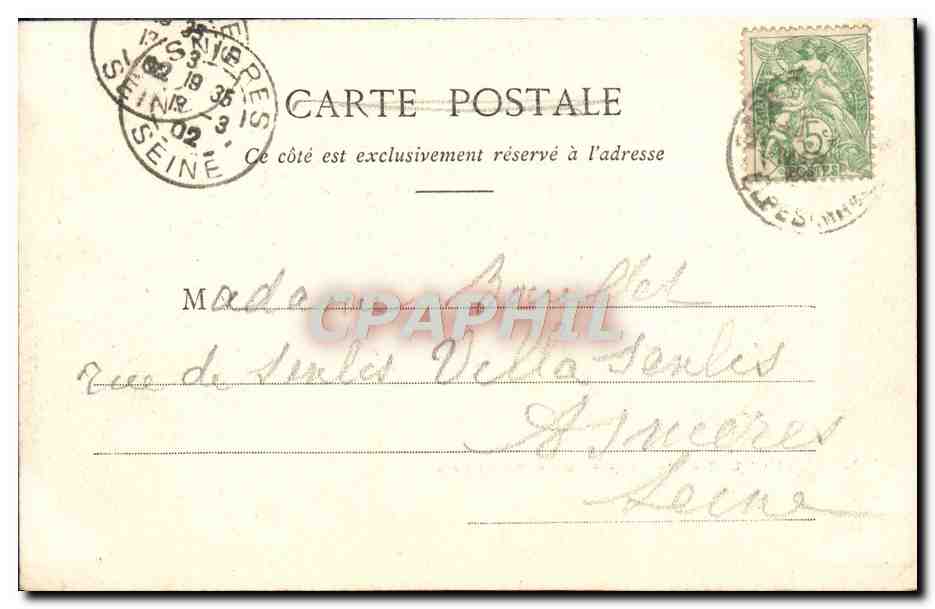 CARTE POSTALE
Ce côté est exclusivement réservé à l'adresse
5c
POSTES
SEINE
19 35
12 - 3
02
SEINE
Madame
CPAPHIL
rue de Senlis Villa Senlis
Asnieres
Seine